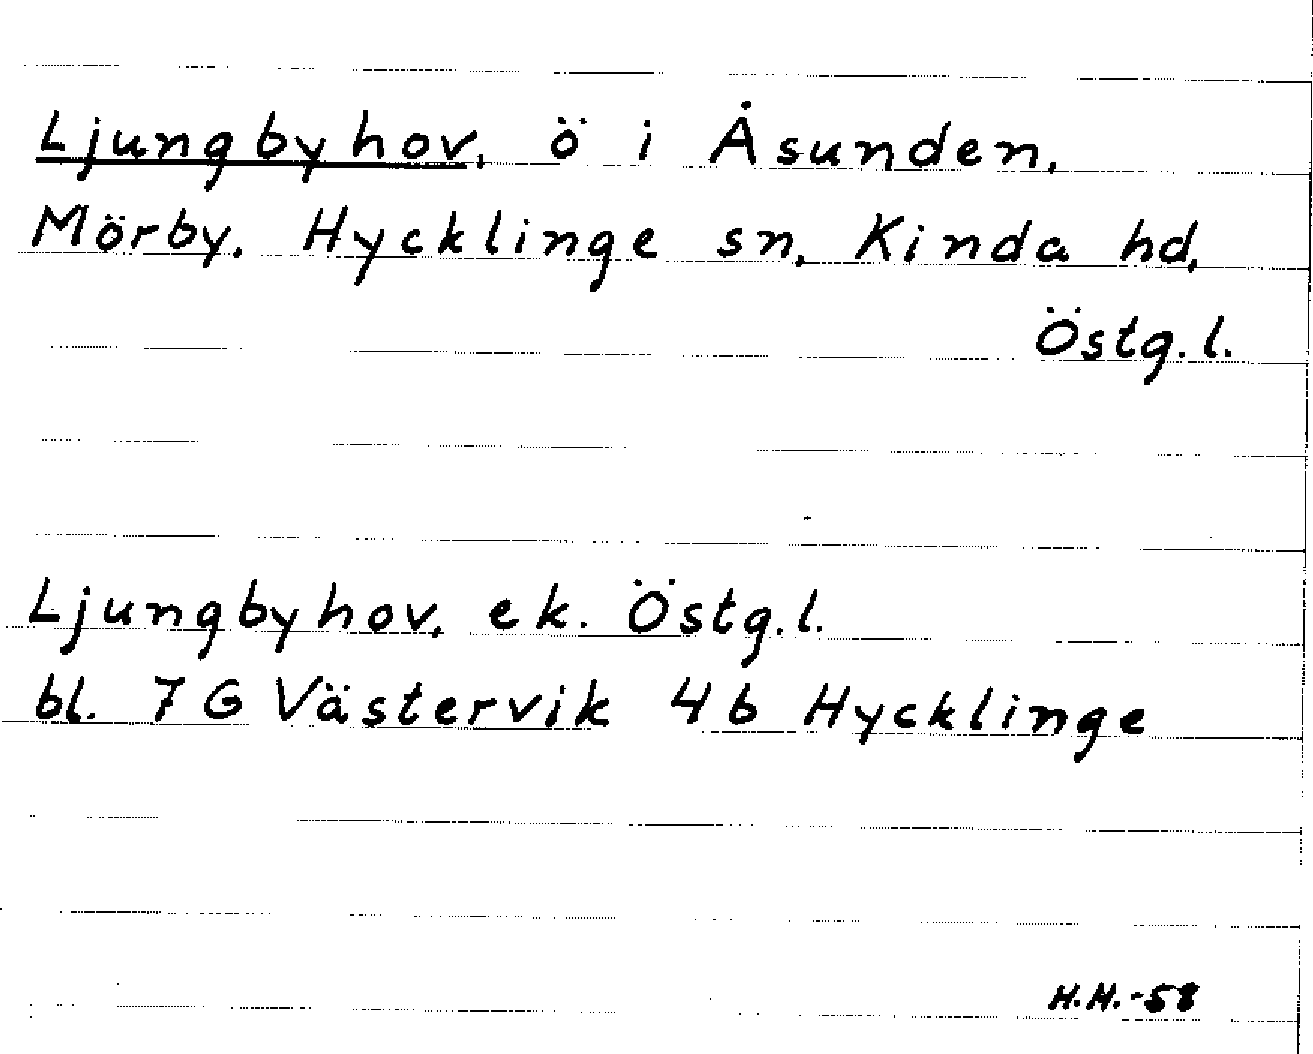 Ljungbyhov, ö i Åsunden,
Mörby, Hycklinge sn, Kinda hd,
Östg. l.
Ljungbyhov, ek. Östg. l.
bl. 7 G Västervik 4 b Hycklinge
H.H.-58